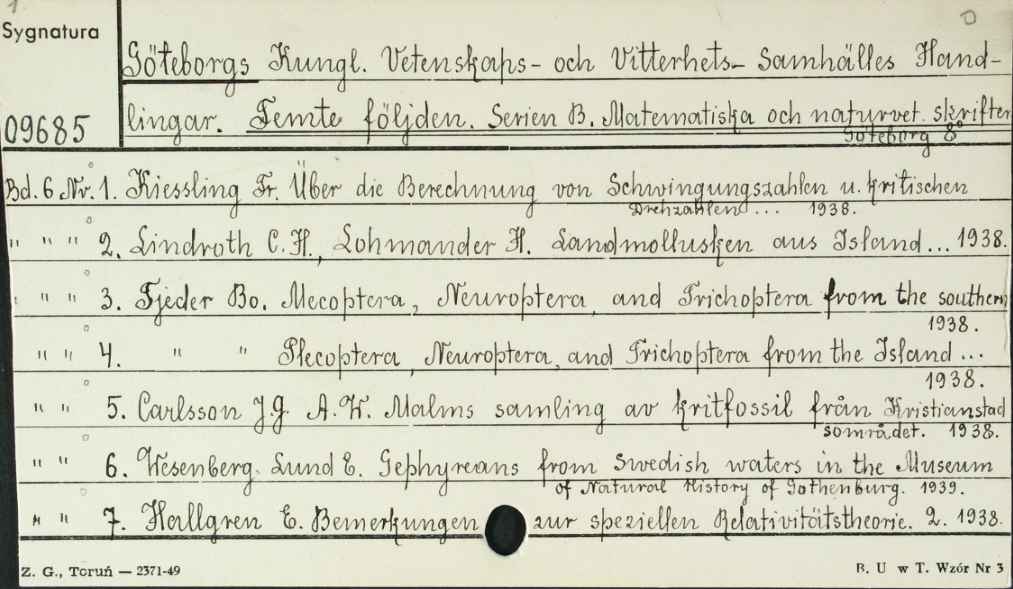 1.
Sygnatura
09685
Göteborgs Kungl. Vetenskaps- och Vitterhets- Samhälles Hand-
lingar. Femte följden. Serien B. Matematiska och naturvet. skrifter
Göteborg 8°
Bd. 6 Nr. 1. Kiessling Fr. Über die Berechnung von Schwingungszahlen u. kritischen
Drehzahlen ... 1938.
" " " 2. Lindroth C.H., Lohmander H. Landmollusken aus Island ... 1938.
" " 3. Tjeder Bo. Mecoptera, Neuroptera, and Trichoptera from the southern
1938.
" " 4. " " Plecoptera, Neuroptera, and Trichoptera from the Island ...
1938.
" " 5. Carlsson J.G. A.W. Malms samling av kritfossil från Kristianstad
sområdet. 1938.
" " 6. Wesenberg. Lund E. Gephyreans from Swedish waters in the Museum
of Natural History of Gothenburg. 1939.
" " 7. Hallgren E. Bemerkungen zur speziellen Relativitätstheorie. 2. 1938.
Z. G., Toruń — 2371-49
B. U w T. Wzór Nr 3